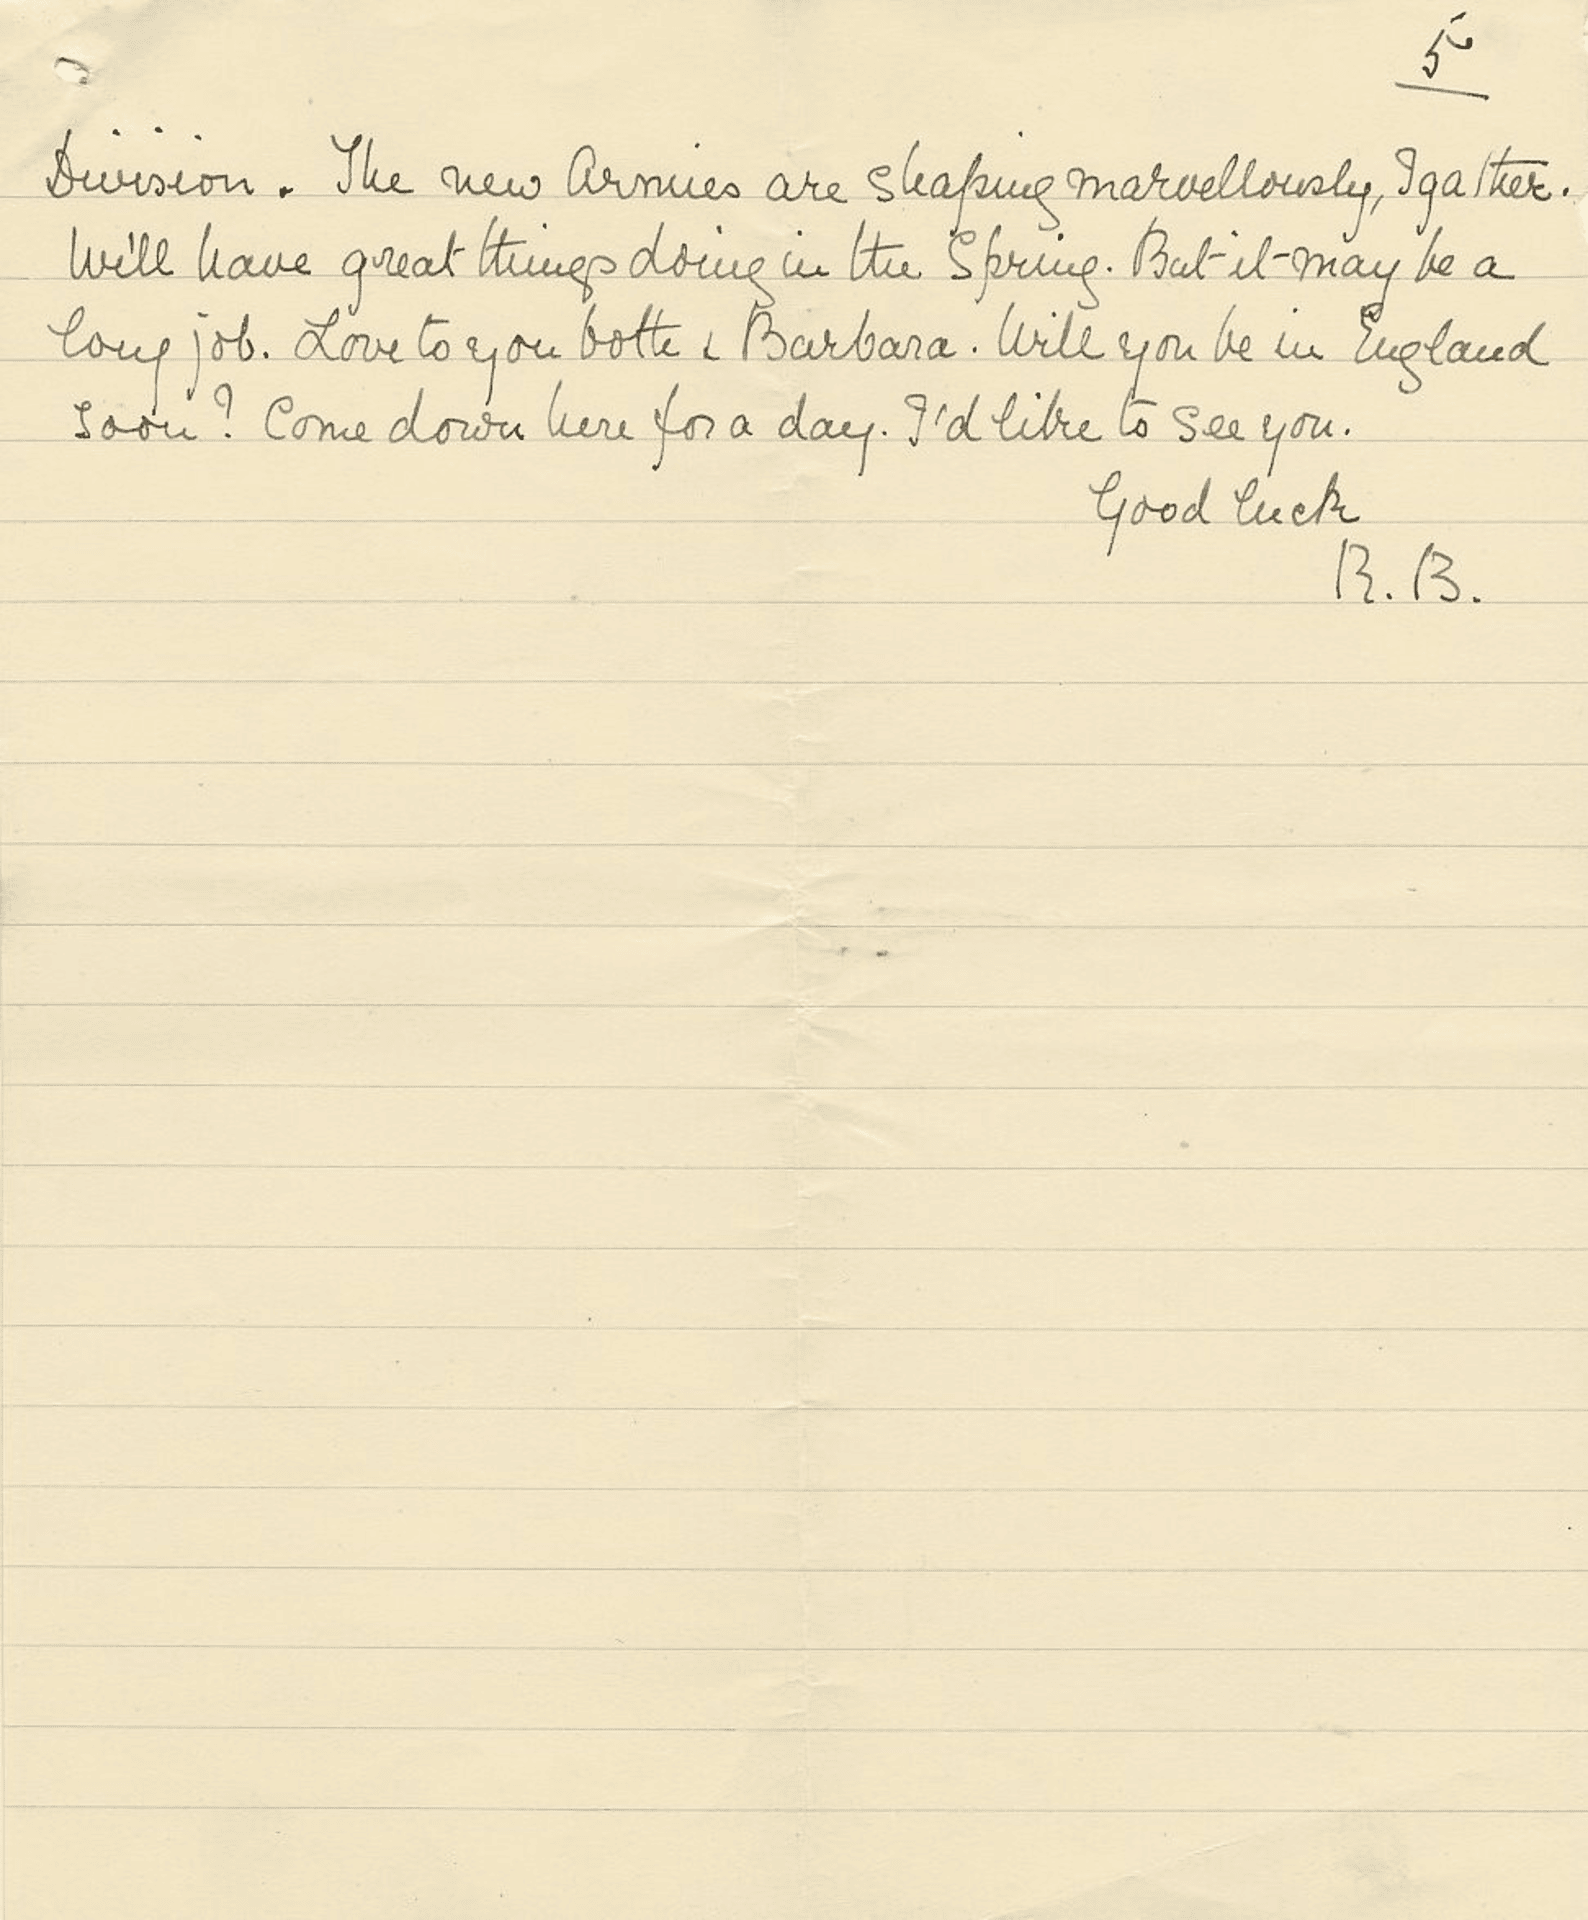 5
Division. The new Armies are shaping marvellously, I gather.
We'll have great things doing in the Spring. But it may be a
long job. Love to you both & Barbara. Will you be in England
soon? Come down here for a day. I'd like to see you.
Good luck
R. B.